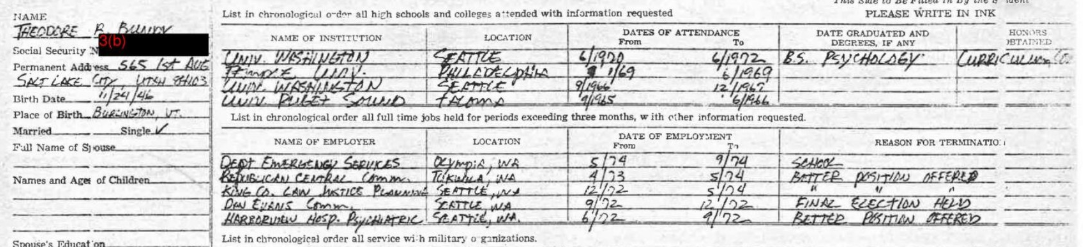 This Side to Be Filled in By the Student
NAME
List in chronological order all high schools and colleges attended with information requested
PLEASE WRITE IN INK
THEODORE R. BUNDY
Social Security N
3(b)
Permanent Address 565 1st AVE
SALT LAKE CITY, UTAH 84103
Birth Date 11/24/46
Place of Birth BURLINGTON, VT.
Married Single ✓
Full Name of Spouse
Names and Ages of Children
Spouse's Education
NAME OF INSTITUTION LOCATION DATES OF ATTENDANCE From To DATE GRADUATED AND DEGREES, IF ANY HONORS OBTAINED
UNIV. WASHINGTON SEATTLE 6/1970 6/1972 B.S. PSYCHOLOGY
TEMPLE UNIV. PHILADELPHIA 1/69 6/1969
UNIV. WASHINGTON SEATTLE 9/1966 12/1967
UNIV. PUGET SOUND TACOMA 9/1965 6/1966
List in chronological order all full time jobs held for periods exceeding three months, with other information requested.
NAME OF EMPLOYER LOCATION DATE OF EMPLOYMENT From To REASON FOR TERMINATION
DEPT EMERGENCY SERVICES OLYMPIA, WA 5/74 9/74 SCHOOL
REPUBLICAN CENTRAL COMM. TUKWILA, WA 4/73 5/74 BETTER POSITION OFFERED
KING CO. LAW JUSTICE PLANNING SEATTLE, WA 12/72 5/74 " " "
DAN EVANS COMM. SEATTLE, WA 9/72 12/72 FINAL ELECTION HELD
HARBORVIEW HOSP. PSYCHIATRIC SEATTLE, WA. 6/72 9/72 BETTER POSITION OFFERED
List in chronological order all service with military organizations.